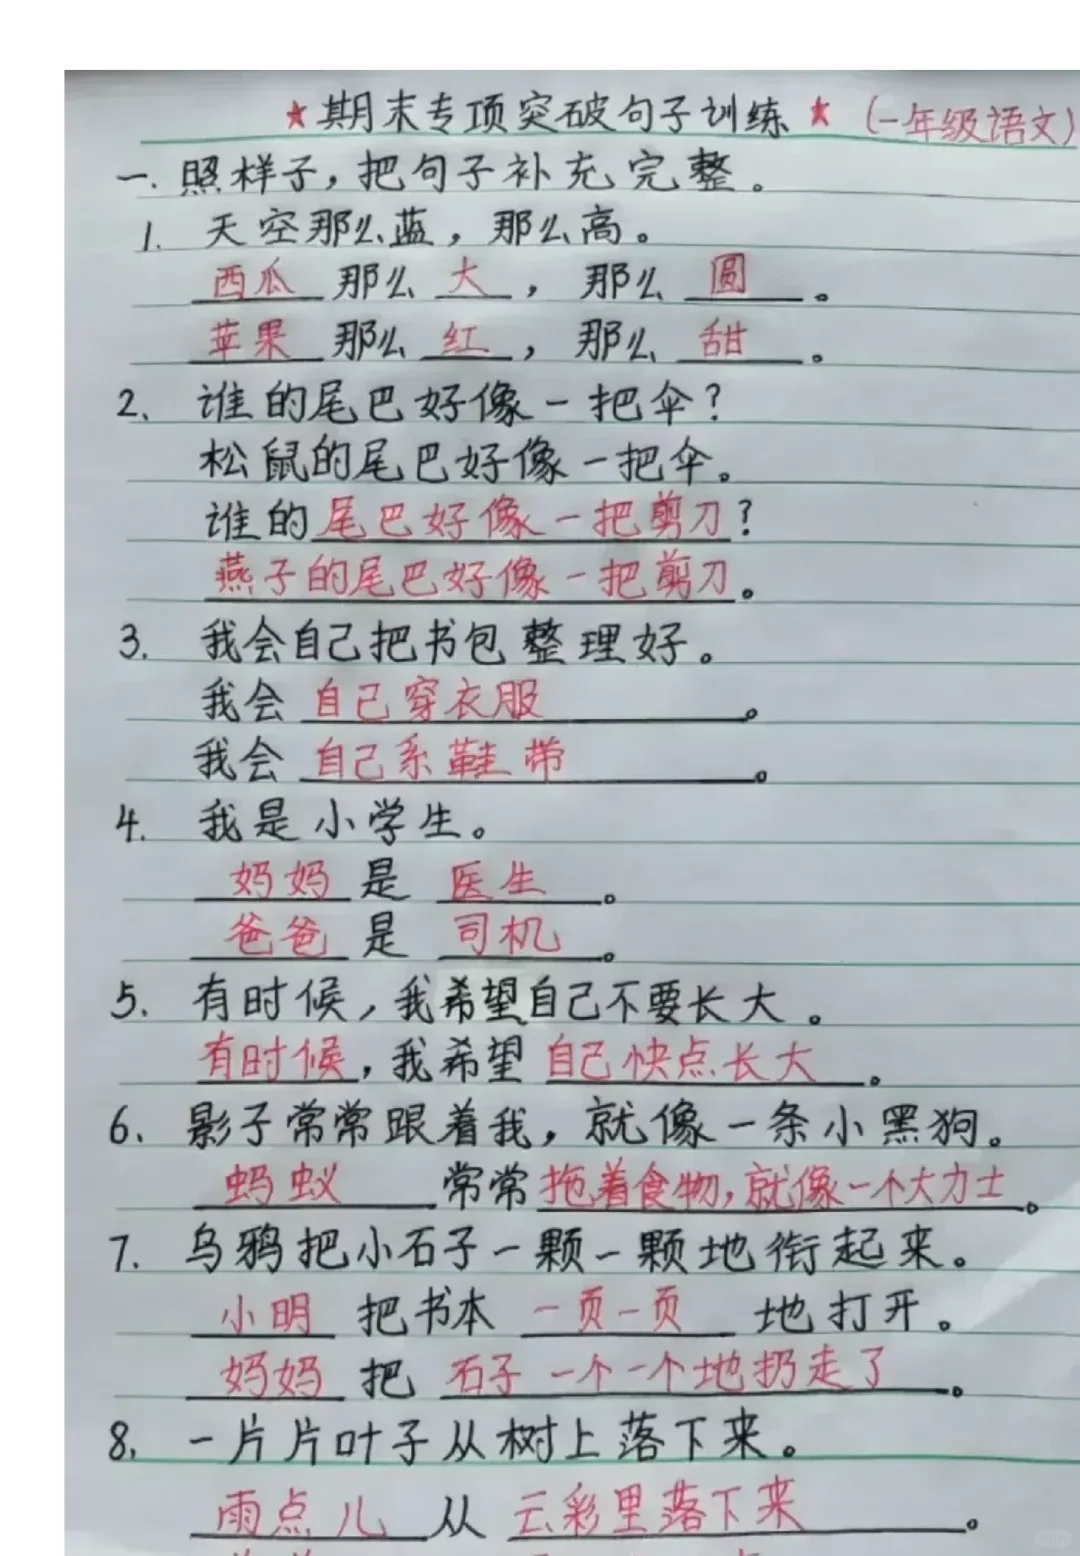 ★期末专项突破句子训练★(一年级语文)
一.照样子,把句子补充完整。
1.天空那么蓝,那么高。
西瓜那么大,那么圆。
苹果那么红,那么甜。
2.谁的尾巴好像一把伞?
松鼠的尾巴好像一把伞。
谁的尾巴好像一把剪刀?
燕子的尾巴好像一把剪刀。
3.我会自己把书包整理好。
我会自己穿衣服。
我会自己系鞋带。
4.我是小学生。
妈妈是医生。
爸爸是司机。
5.有时候,我希望自己不要长大。
有时候,我希望自己快点长大。
6.影子常常跟着我,就像一条小黑狗。
蚂蚁常常拖着食物,就像一个大力士。
7.乌鸦把小石子一颗一颗地衔起来。
小明把书本一页一页地打开。
妈妈把石子一个一个地扔走了。
8.一片片叶子从树上落下来。
雨点儿从云彩里落下来。